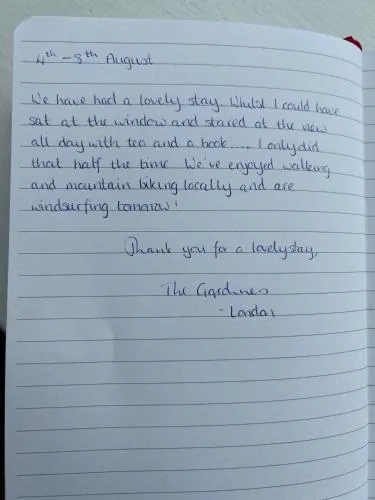 4th - 8th August
We have had a lovely stay. Whilst I could have
sat at the window and stared at the view
all day with tea and a book.... I only did
that half the time. We've enjoyed walking
and mountain biking locally and are
windsurfing tomorrow!
Thank you for a lovely stay,
The Gardners
- London